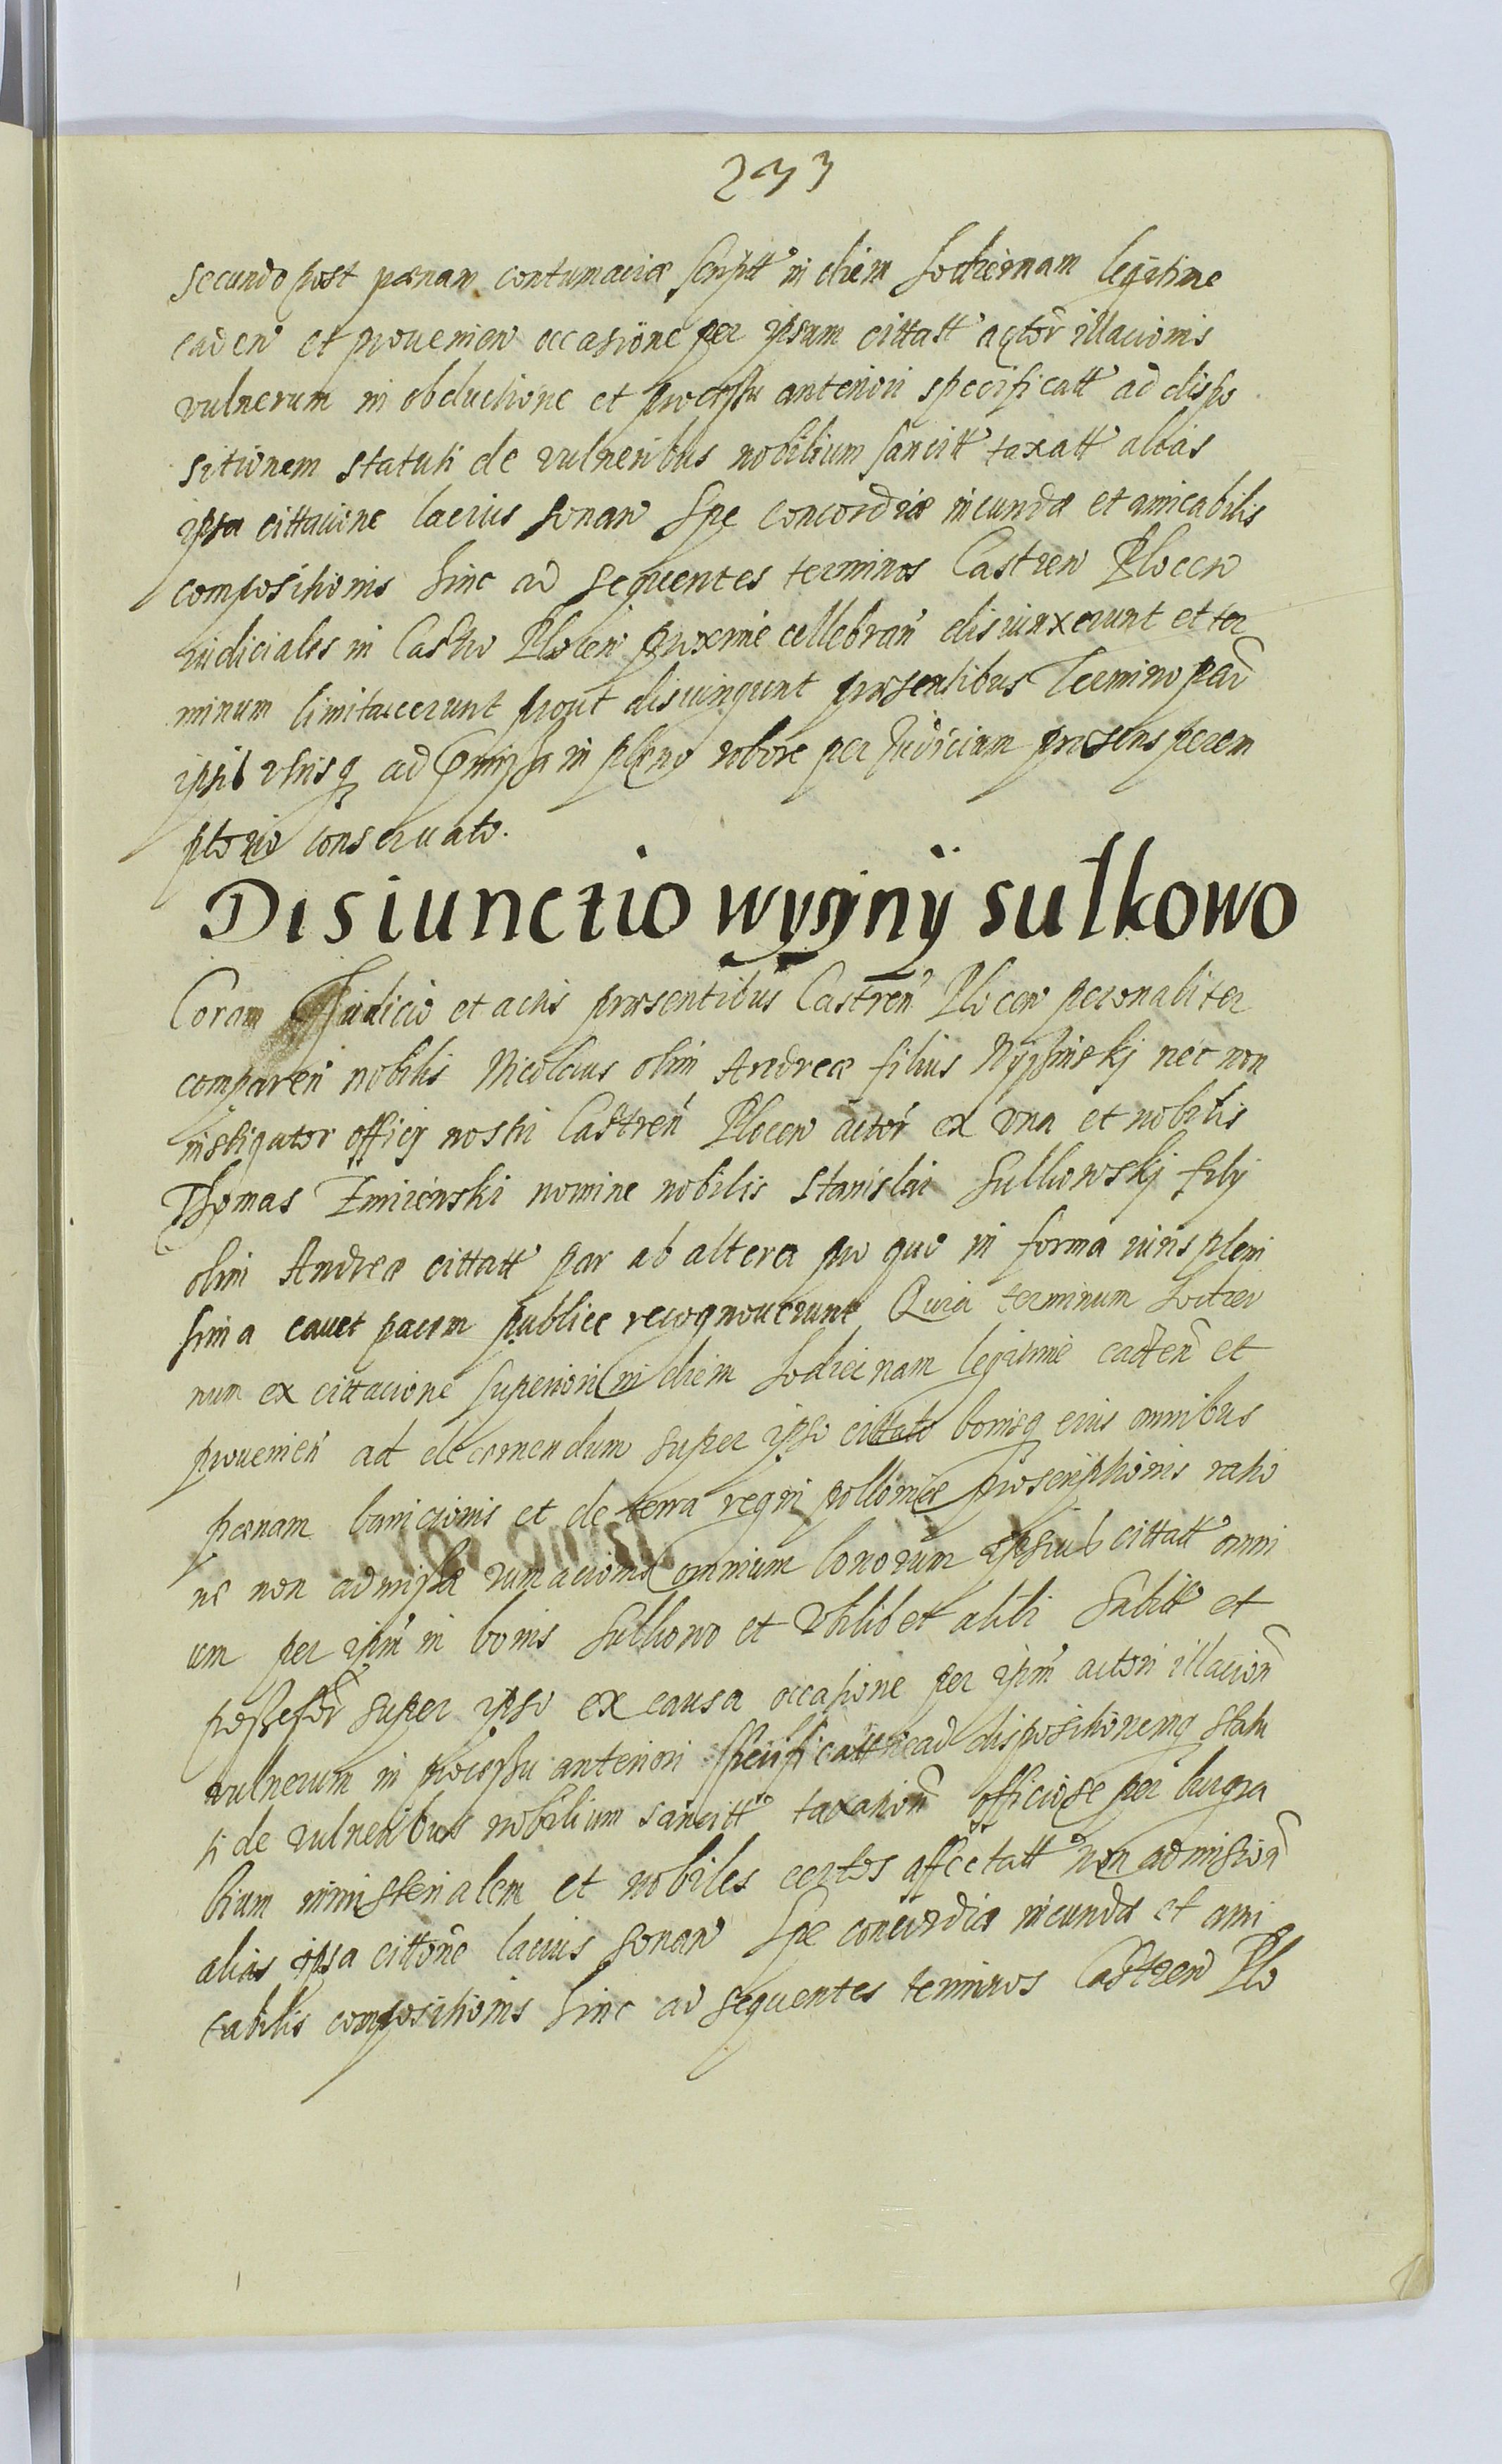 233
secundo post pœnam contumaciæ scriptt in diem hodiernam legitime
caden et prouenien occasione per ipsum cittatt actor illacionis
vulnerum in obductione et processu anteriori specificatt ad dispo
sitionem statuti de vulneribus nobilium sancitt taxatt alias
ipsa cittacione lacius sonan Spe concordiæ ineundæ et amicabilis
compositionis hinc ad sequentes terminos Castren Plocen
iudiciales in Castro Plocen proxime cellebran disiunxerunt et ter
minum limitaeerunt prout disiungunt præsentibus Termino
ipsis in pleno robore per Judicium præsens perem
ptorio conseruato.
Disiunctio wyssyny sulkowo
Coram Judicio et actis præsentibus Castren Plocen personaliter
comparen nobilis Nicolaus olim Andreæ filius nec non
instigator officij nostri Castren Plocen actor ex vna et nobilis
Thomas Zmiienski nomine nobilis Stanislai Sulkowskj filij
olim Andreæ cittatt par ab altera pro quo in forma iuris pleni
ssima cauet pacem publice recognouerunt Quia terminum hodier
num ex cittacione superiori in diem hodiernam legitime caden et
prouenien ad decernendum super ipso cittato bonisq eius omnibus
pœnam banicionis et de terra regni polloniæ proscriptionis ratio
ne non admissæ rumacionis omnium bonorum ipsius cittatt omni
um per ipm in bonis Sulkowo et vbilibet alibi habitt et
possessor super ipso ex causa occasione per ipm actori illacion
vulnerum in processu anteriori specificatt ad dispositionemq statu
ti de vulneribus nobilium sancitt taxation officiose per burgra
bium ministerialem et nobiles certos affectatt non admission
alias ipsa cittone lacius sonan Spe concordiæ ineundæ et ami
cabilis compositionis hinc ad sequentes terminos Castren Plo